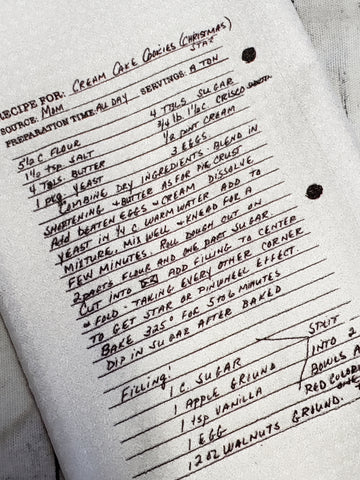 RECIPE FOR: CREAM CAKE COOKIES (CHRISTMAS
STAR
SOURCE: MOM
PREPARATION TIME: ALL DAY SERVINGS: A TON
5½ C FLOUR 4 TBLS SUGAR
1½ tsp SALT 3/4 lb 1½ C CRISCO
4 TBLS. BUTTER ½ PINT CREAM
1 PKG YEAST 3 EGGS
COMBINE DRY INGREDIENTS. BLEND IN
SHORTENING + BUTTER AS FOR PIE CRUST
Add BEATEN EGGS + CREAM DISSOLVE
YEAST IN ¼ C WARM WATER ADD TO
MIXTURE. MIX WELL + KNEAD FOR A
FEW MINUTES. ROLL DOUGH OUT ON
2 PARTS FLOUR AND ONE PART SUGAR.
CUT INTO ADD FILLING TO CENTER
"FOLD - TAKING EVERY OTHER CORNER
TO GET STAR OR PINWHEEL EFFECT.
BAKE 325° FOR 5 TO 6 MINUTES
DIP IN SUGAR AFTER BAKED
Filling:
1 C. SUGAR SPLIT
1 APPLE GROUND INTO 2
1 tsp VANILLA BOWLS
1 EGG RED COLOR
12 OZ WALNUTS GROUND. ONE